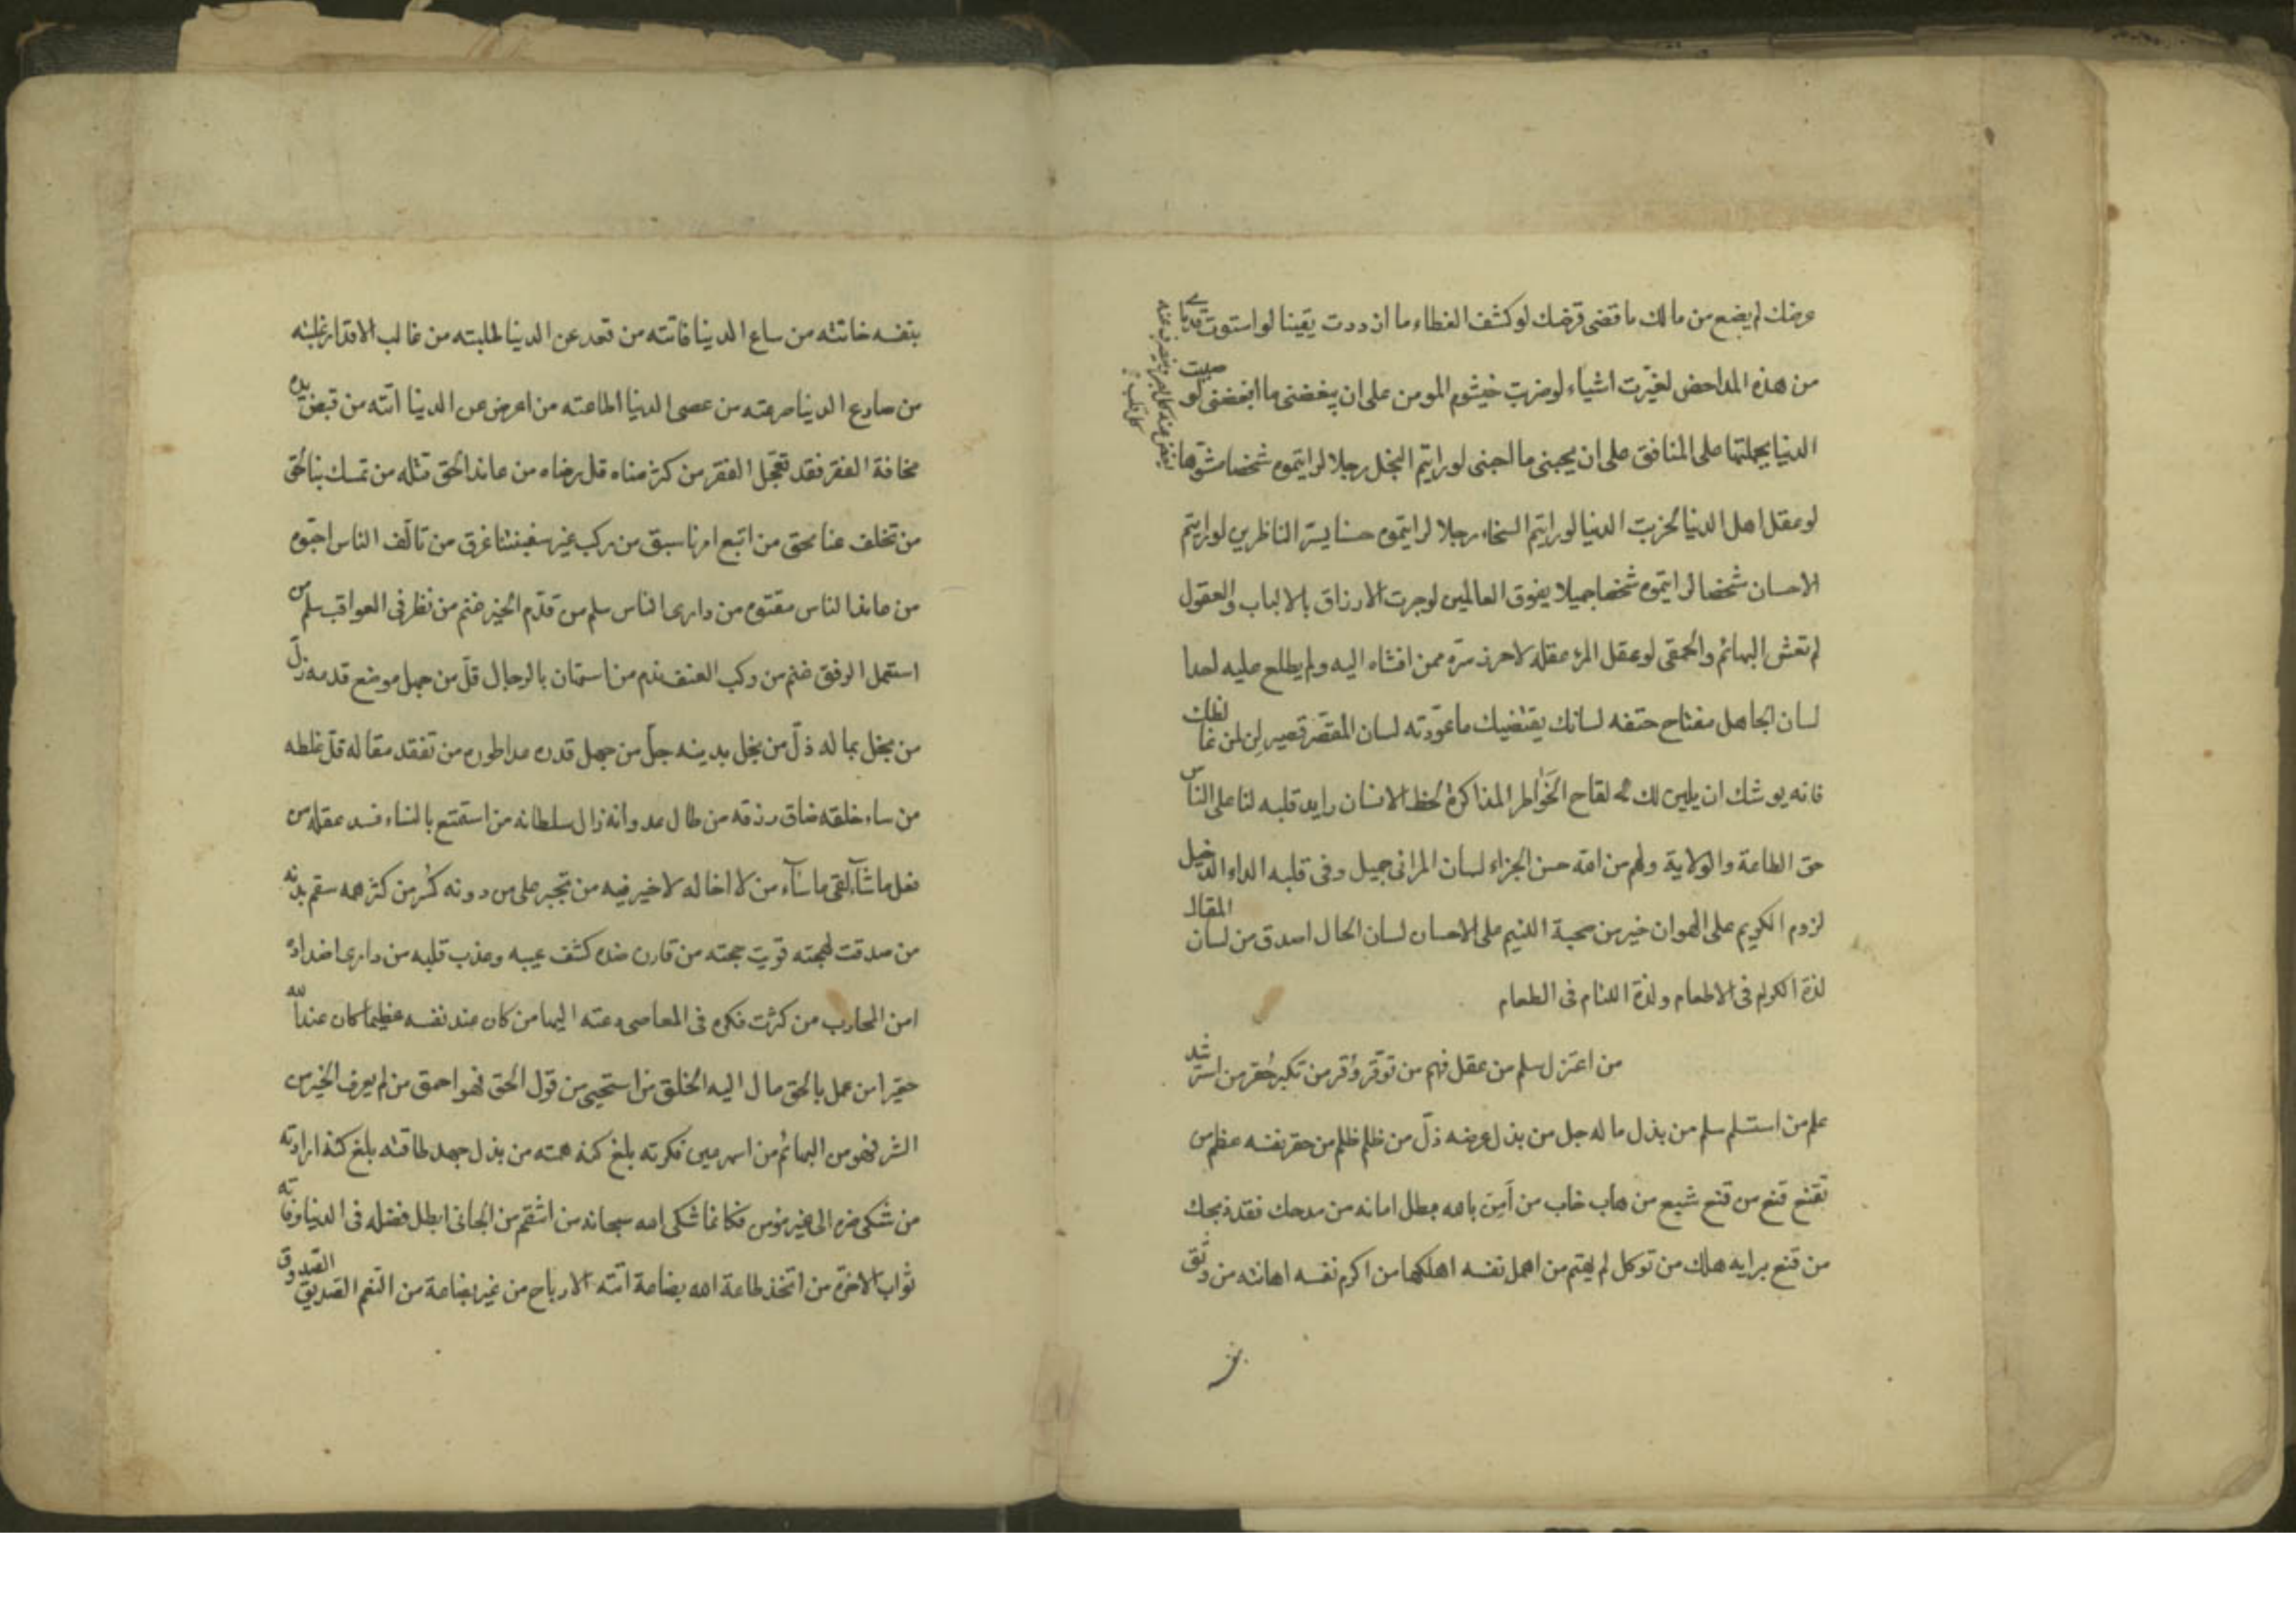 عرضك لم يضع من مالك ما قضى قرضك لو كشف الغطاء ما ازددت يقينا لو استوت قدماى
من هذه المداحض لغيّرت اشياء لو ضربت خيشوم المومن على ان يبغضنى ما ابغضنى لو صببت
الدنيا بجملتها على المنافق على ان يحبنى ما احبنى لو رايتم البخل رجلا لرايتموه شخصا مشوّها
يغض عنه كل بصر وينصرف عنه
كل قلب
لو عقل اهل الدنيا لخربت الدنيا لو رايتم السخاء رجلا لرايتموه حسنا يسرّ الناظرين لو رايتم
الاحسان شخصا لرايتموه شخصا جميلا يفوق العالمين لو جرت الارزاق بالالباب والعقول
لم تعش البهائم والحمقى لو عقل المرء عقله لاحرز سرّه ممن افشاه اليه ولم يطلع عليه احدا
لسان الجاهل مفتاح حتفه لسانك يقتضيك ما عوّدته لسان المقصّر قصير لِن لمن غالظك
فانه يوشك ان يلين لك لقاح الخواطر المذاكرة لحظ الانسان رايد قلبه لنا على الناس
حق الطاعة والولاية ولهم من الله حسن الجزاء لسان المرائى جميل وفى قلبه الداء الدخيل
لزوم الكريم على الهوان خير من صحبة اللئيم على الاحسان لسان الحال اصدق من لسان المقال
لذة الكرام فى الاطعام ولذة اللئام فى الطعام
من اعتزل سلم من عقل فهم من توقّر وُقر من تكبر حُقر من استرشد
علم من استسلم سلم من بذل ماله جل من بذل عرضه ذلّ من ظلم ظُلم من حقر نفسه عظم من
تقنع قنع من قنع شبع من هاب خاب من اَمِن بالله بطل امانه من مدحك فقد ذبحك
من قنع برايه هلك من توكل لم يهتم من اهمل نفسه اهلكها من اكرم نفسه اهانته من وثق
بنفسه خانته من ساع الدنيا فاتته من قعد عن الدنيا طلبته من غالب الاقدار غلبته
من صارع الدنيا صرعته من عصى الدنيا اطاعته من اعرض عن الدنيا اتته من قبض يده
مخافة الفقر فقد تعجّل الفقر من كثر مناه قل رضاه من عاند الحق قتله من تمسك بنا لحق
من تخلف عنا محق من اتبع امرنا سبق من ركب غير سفينتنا غرق من تالّف الناس احبّوه
من عاند الناس مقتوه من دارى الناس سلم من قدّم الخير غنم من نظر فى العواقب سلم من
استعمل الرفق غنم من ركب العنف ندم من استهان بالرجال قلّ من جهل موضع قدمه زلّ
من بخل بماله ذلّ من بخل بدينه جلّ من جهل قدره عدا طوره من تفقد مقاله قلّ غلطه
من ساء خلقه ضاق رزقه من طال عدوانه زال سلطانه من استمتع بالنساء فسد عقله من
فعل ما شآء لقى ما سآء من لا اخا له لا خير فيه من تجبر على من دونه كُسر من كثر همه سقم بدنه
من صدقت لهجته قويت حجته من قارن ضده كشف عيبه وعذب قلبه من دارى اضداده
امن المحارب من كثرت فكره فى المعاصى دعته اليها من كان عند نفسه عظيما كان عند الله
حقيرا من عمل بالحق مال اليه الخلق من استحيى من قول الحق فهو احمق من لم يعرف الخير من
الشر فهو من البهائم من اسهر عين فكرته بلغ كنه همته من بذل جهد طاقته بلغ كنه ارادته
من شكى ضره الى غير مؤمن فكانما شكى الله سبحانه من انتقم من الجانى ابطل فضله فى الدنيا وفاته
ثواب الاخرة من اتخذ طاعة الله بضاعة اتته الارباح من غير بضاعة من النعم الصديق الصدوق